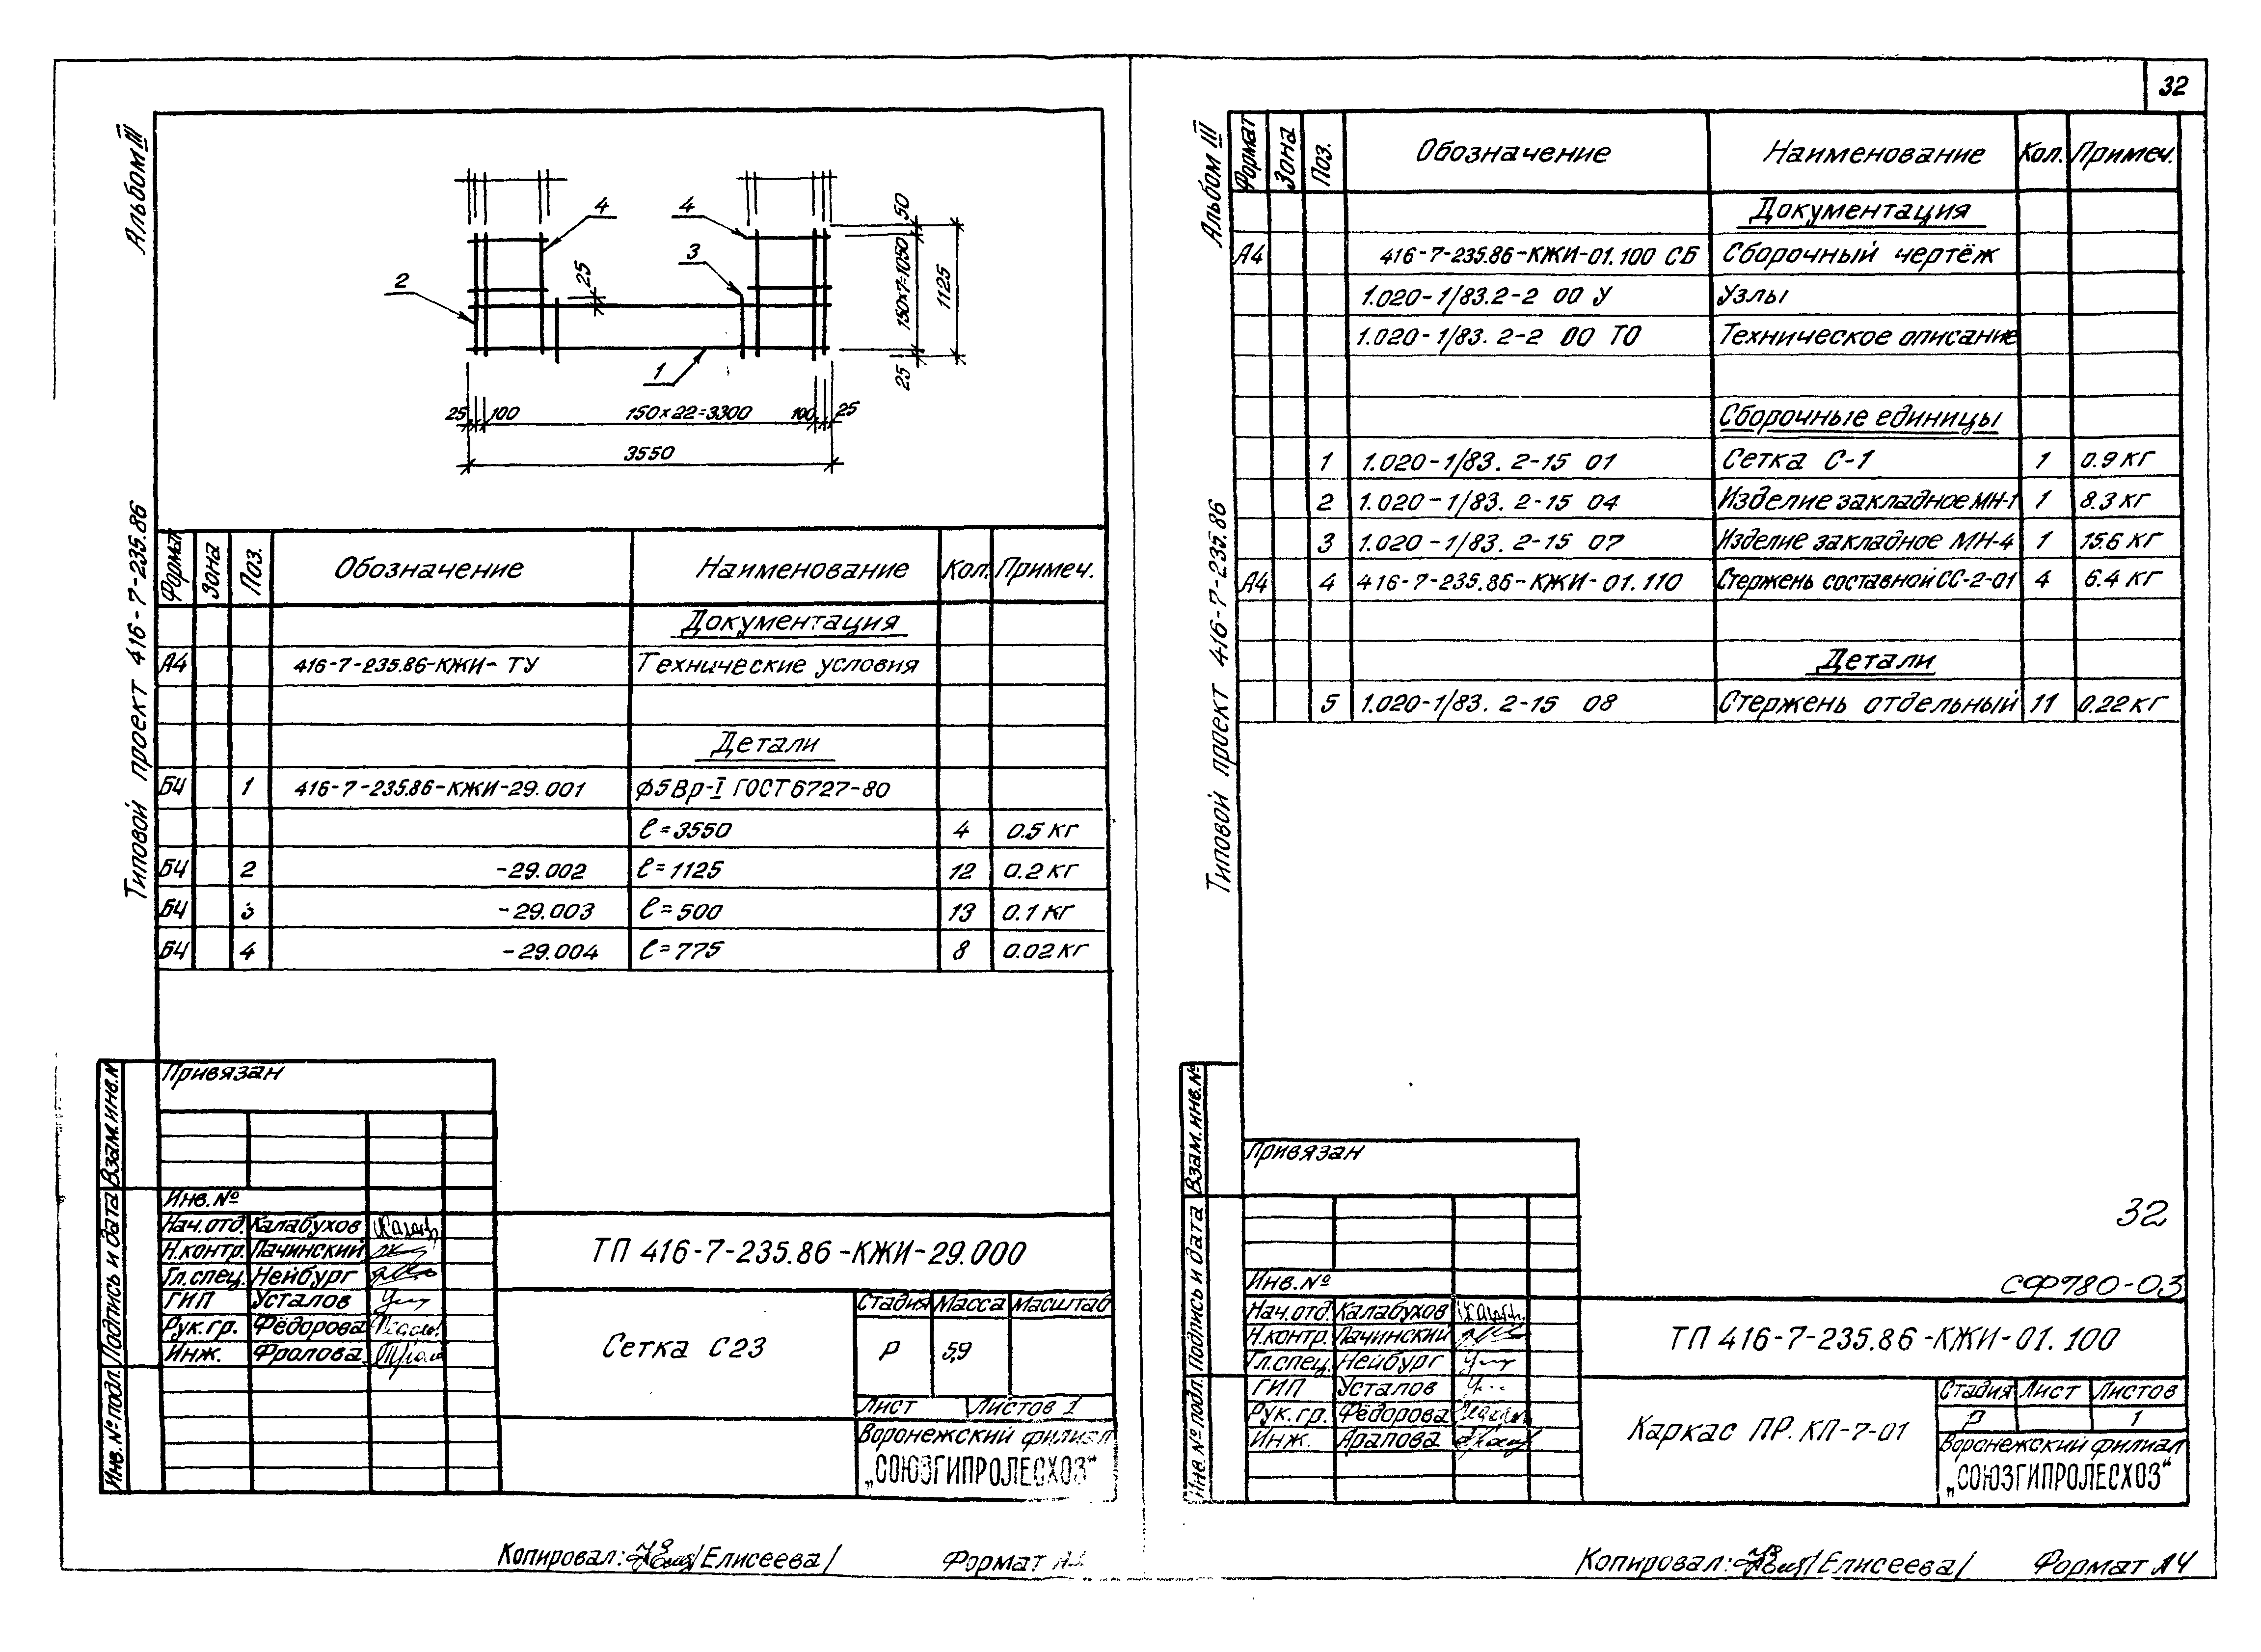 32
Альбом III
Типовой проект 416-7-235.86
4
4
3
2
1
25
50
150×7=1050
1125
25
25
100
150×22=3300
100
25
3550
Формат Зона Поз. Обозначение Наименование Кол. Примеч.
Документация
А4 416-7-235.86-КЖИ-ТУ Технические условия
Детали
БЧ 1 416-7-235.86-КЖИ-29.001 ф5Вр-I ГОСТ 6727-80
ℓ=3550 4 0.5 кг
БЧ 2 -29.002 ℓ=1125 12 0.2 кг
БЧ 3 -29.003 ℓ=500 13 0.1 кг
БЧ 4 -29.004 ℓ=775 8 0.02 кг
Привязан
Инв. №
Нач.отд. Калабухов
Н.контр. Пачинский
Гл.спец. Нейбург
ГИП Усталов
Рук.гр. Фёдорова
Инж. Фролова
Взам.инв.№
Подпись и дата
Инв.№подл.
ТП 416-7-235.86-КЖИ-29.000
Сетка С23
Стадия Масса Масштаб
Р 5,9
Лист Листов 1
Воронежский филиал
„СОЮЗГИПРОЛЕСХОЗ"
Копировал: /Елисеева/ Формат
Альбом III
Типовой проект 416-7-235.86
Формат Зона Поз. Обозначение Наименование Кол. Примеч.
Документация
А4 416-7-235.86-КЖИ-01.100 СБ Сборочный чертёж
1.020-1/83.2-2 00 У Узлы
1.020-1/83.2-2 00 ТО Техническое описание
Сборочные единицы
1 1.020-1/83. 2-15 01 Сетка С-1 1 0.9 кг
2 1.020-1/83. 2-15 04 Изделие закладное МН-1 1 8.3 кг
3 1.020-1/83. 2-15 07 Изделие закладное МН-4 1 15.6 кг
А4 4 416-7-235.86-КЖИ-01.110 Стержень составной СС-2-01 4 6.4 кг
Детали
5 1.020-1/83. 2-15 08 Стержень отдельный 11 0.22 кг
Привязан
Инв.№
Нач.отд. Калабухов
Н.контр. Пачинский
Гл.спец. Нейбург
ГИП Усталов
Рук.гр. Фёдорова
Инж. Арапова
Взам.инв.№
Подпись и дата
Инв.№подл.
32
СФ780-03
ТП 416-7-235.86-КЖИ-01.100
Каркас ПР.КП-7-01
Стадия Лист Листов
Р 1
Воронежский филиал
„СОЮЗГИПРОЛЕСХОЗ"
Копировал: /Елисеева/ Формат А4